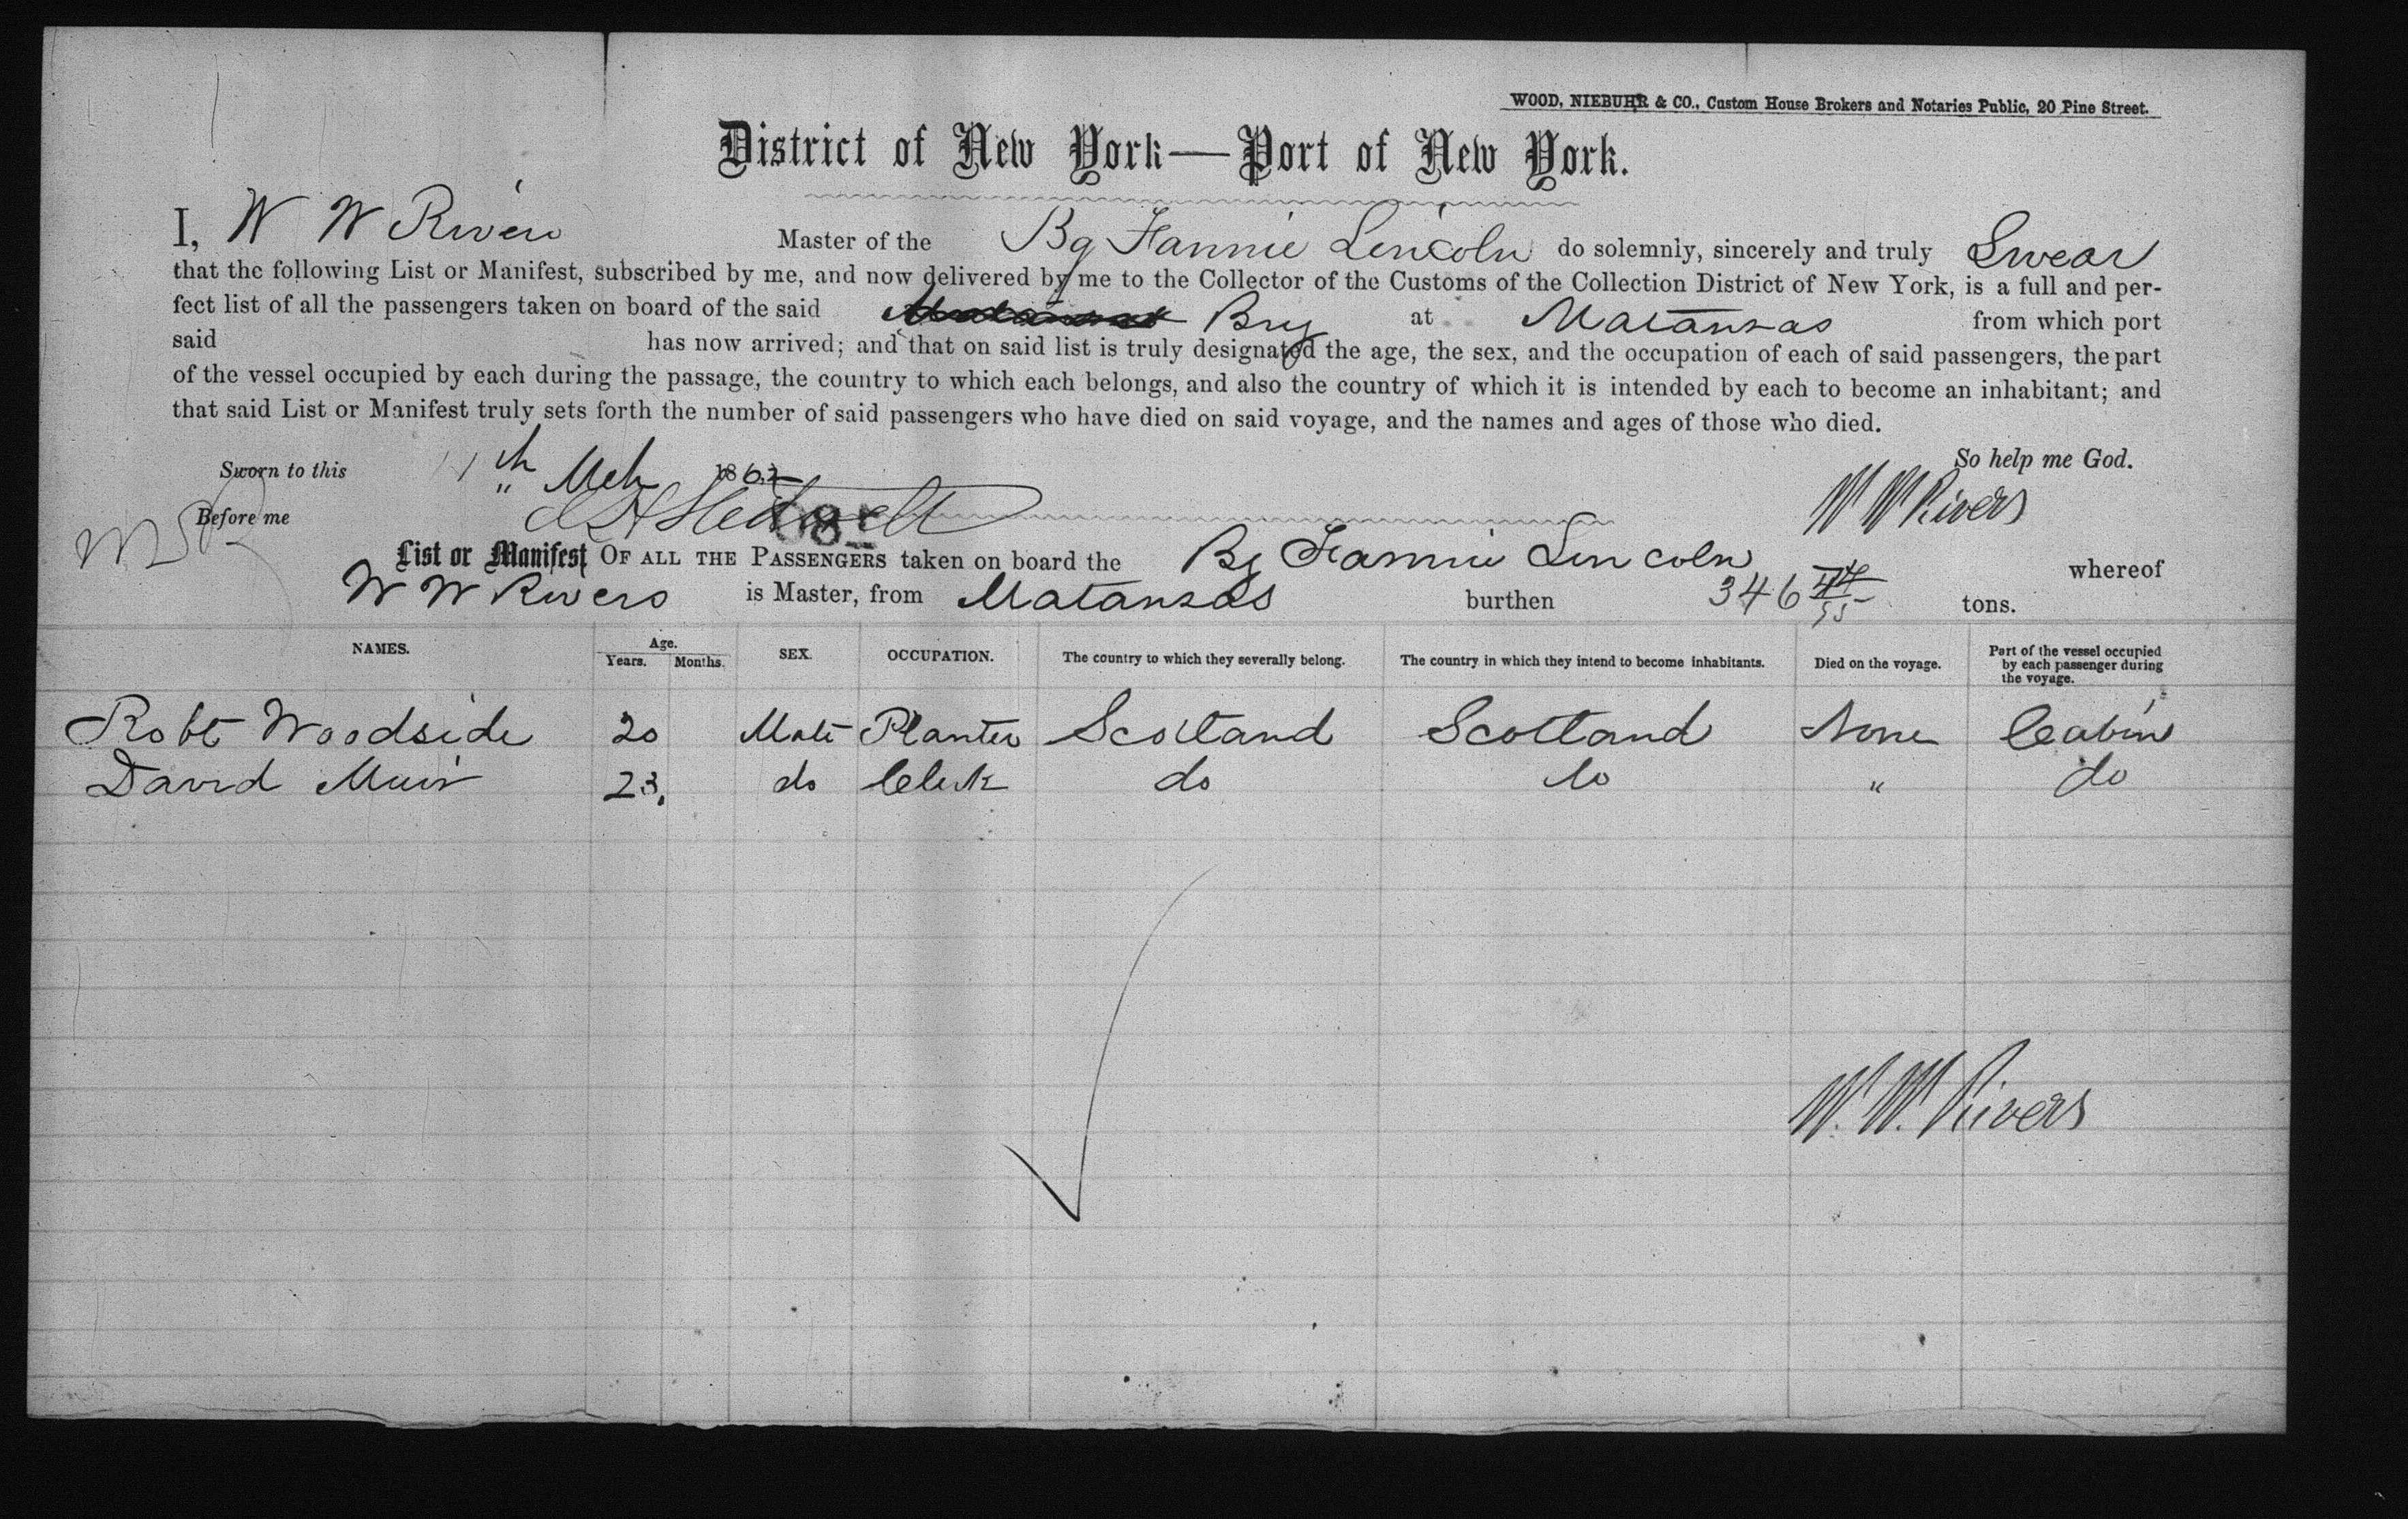 WOOD, NIEBUHR & CO., Custom House Brokers and Notaries Public, 20 Pine Street.
District of New York—Port of New York.
I, W W Rivers Master of the Bg Fannie Lincoln do solemnly, sincerely and truly Swear
that the following List or Manifest, subscribed by me, and now delivered by me to the Collector of the Customs of the Collection District of New York, is a full and per-
fect list of all the passengers taken on board of the said Brig at Matanzas from which port
said has now arrived; and that on said list is truly designated the age, the sex, and the occupation of each of said passengers, the part
of the vessel occupied by each during the passage, the country to which each belongs, and also the country of which it is intended by each to become an inhabitant; and
that said List or Manifest truly sets forth the number of said passengers who have died on said voyage, and the names and ages of those who died.
Sworn to this th Mch 1862 So help me God.
Before me W W Rivers
List or Manifest OF ALL THE PASSENGERS taken on board the Bg Fannie Lincoln whereof
W W Rivers is Master, from Matanzas burthen 346 44/95 tons.
NAMES. Age. Years. Months. SEX. OCCUPATION. The country to which they severally belong. The country in which they intend to become inhabitants. Died on the voyage. Part of the vessel occupied by each passenger during the voyage.
Robt Woodside 20 Male Planter Scotland Scotland None Cabin
David Muir 23. do Clerk do do " do
W. W. Rivers